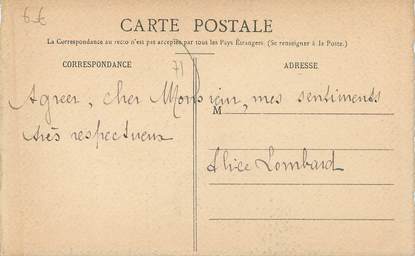 6€
CARTE POSTALE
La Correspondance au recto n'est pas acceptée par tous les Pays Étrangers. (Se renseigner à la Poste.)
CORRESPONDANCE
71
ADRESSE
Agréer, cher Monsieur, mes sentiments
très respectueux
M
Alice Lombard